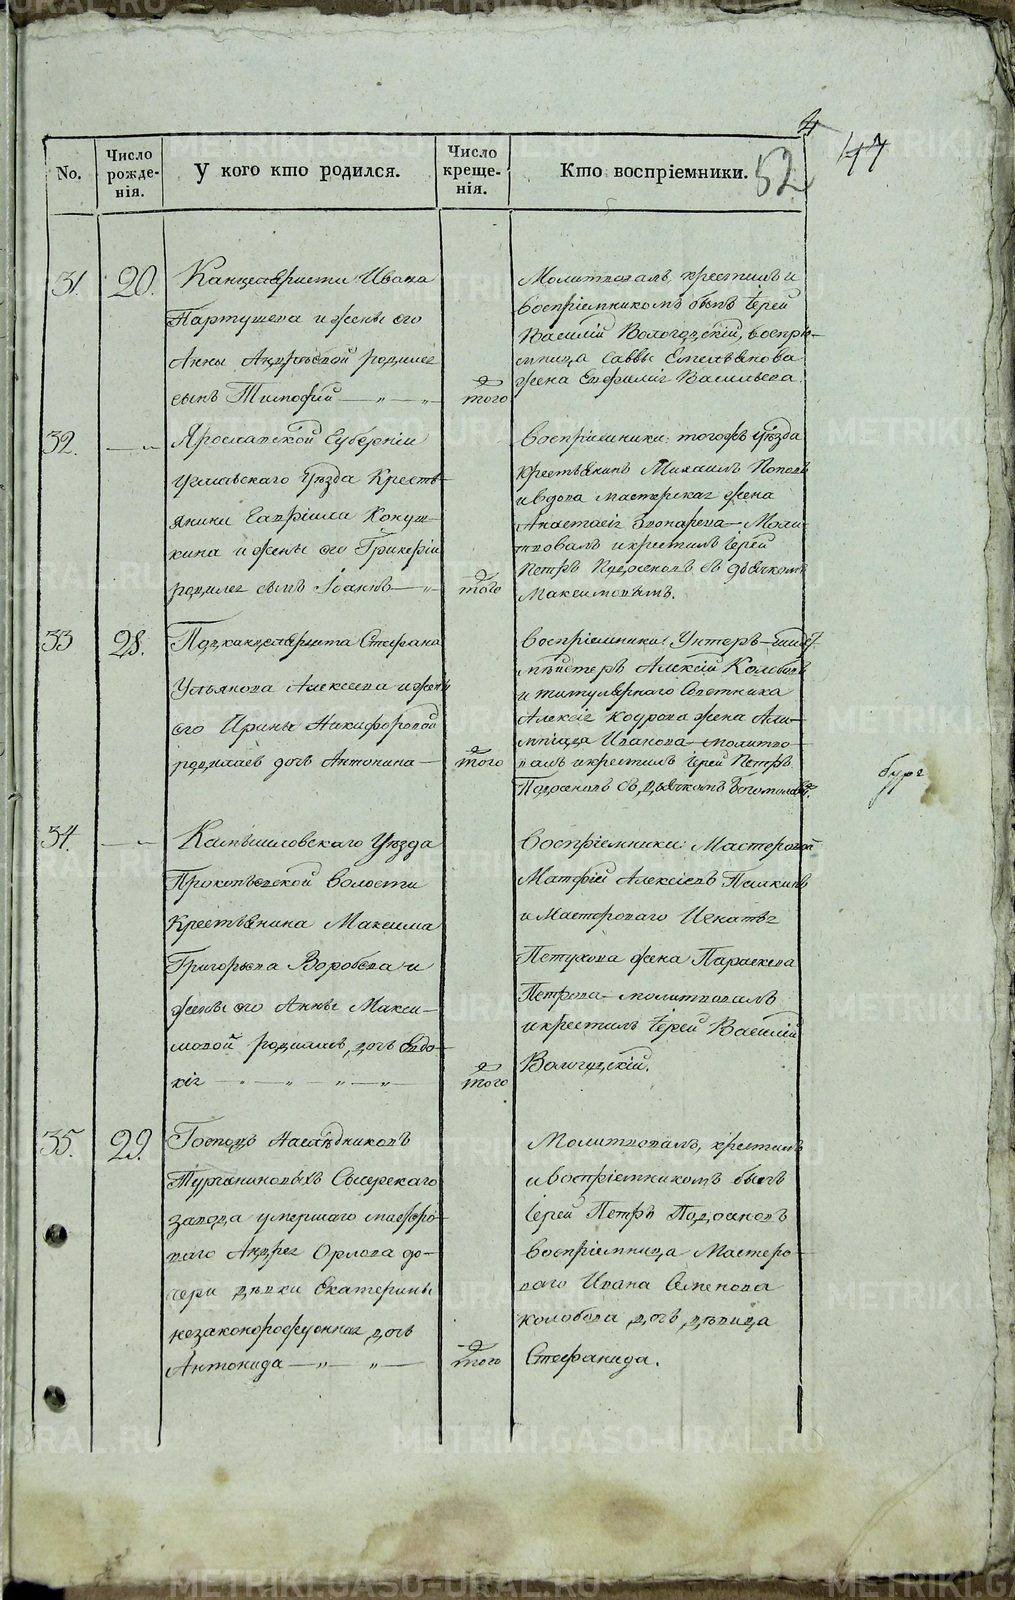 4
47
52
No.
Число рожденія.
У кого кто родился.
Число крещенія.
Кто воспріемники.
31.
20.
Канцеляриста Ивана
Партушева и жены его
Анны Андреевой родился
сынъ Тимофей
того
Молитвовалъ, крестилъ и
воспріемникомъ былъ Іерей
Василій Вологодскій, воспріе-
мница Саввы Емельянова
жена Евфимія Васильева.
32.
Ярославской Губерніи
Угличскаго Уѣзда Кресть-
янина Гавріила Кокуш-
кина и жены его Гликеріи
родился сынъ Іоаннъ
того
Воспріемники: тогожъ Уѣзда
Крестьянинъ Михаилъ Поповъ
и вдова мастерская жена
Анастасія Зоонарева. Моли-
твовалъ и крестилъ Іерей
Петръ съ дьячкомъ
Максимовымъ.
33
28.
Подканцеляриста Стефана
Ульянова Алексеева и жены
его Ирины Никифоровой
родилась дочь Антонина
того
Воспріемники: Унтеръ-шихт-
мейстеръ Алексій Колобовъ
и титулярнаго Советника
Алексія Кодрова жена Оли-
мпіада Иванова молитво-
валъ и крестилъ Іерей Петръ
съ дьячкомъ Богомоловымъ.
бург
34.
Камышловскаго Уѣзда
Прокопьевской Волости
Крестьянина Максима
Григорьева Воробьева и
жены его Анны Макси-
мовой родилась дочь Евдо-
кія
того
Воспріемники: Мастеровой
Матфій Алексѣевъ Пилкинъ
и Мастероваго Игнатія
Петухова жена Параскева
Петрова молитвовалъ
и крестилъ Іерей Василій
Вологодскій.
35.
29.
Господъ Наслѣдниковъ
Турчаниновыхъ Сысерскаго
завода умершаго мастеро-
ваго Андрея Орлова до-
чери дѣвки Екатерины
незаконорожденная дочь
Антонида
того
Молитвовалъ, крестилъ
и воспріемникомъ былъ
Іерей Петръ
воспріемница Мастеро-
ваго Ивана Семенова
Колобова дочь дѣвица
Стефанида.
METRIKI.GASO-URAL.RU